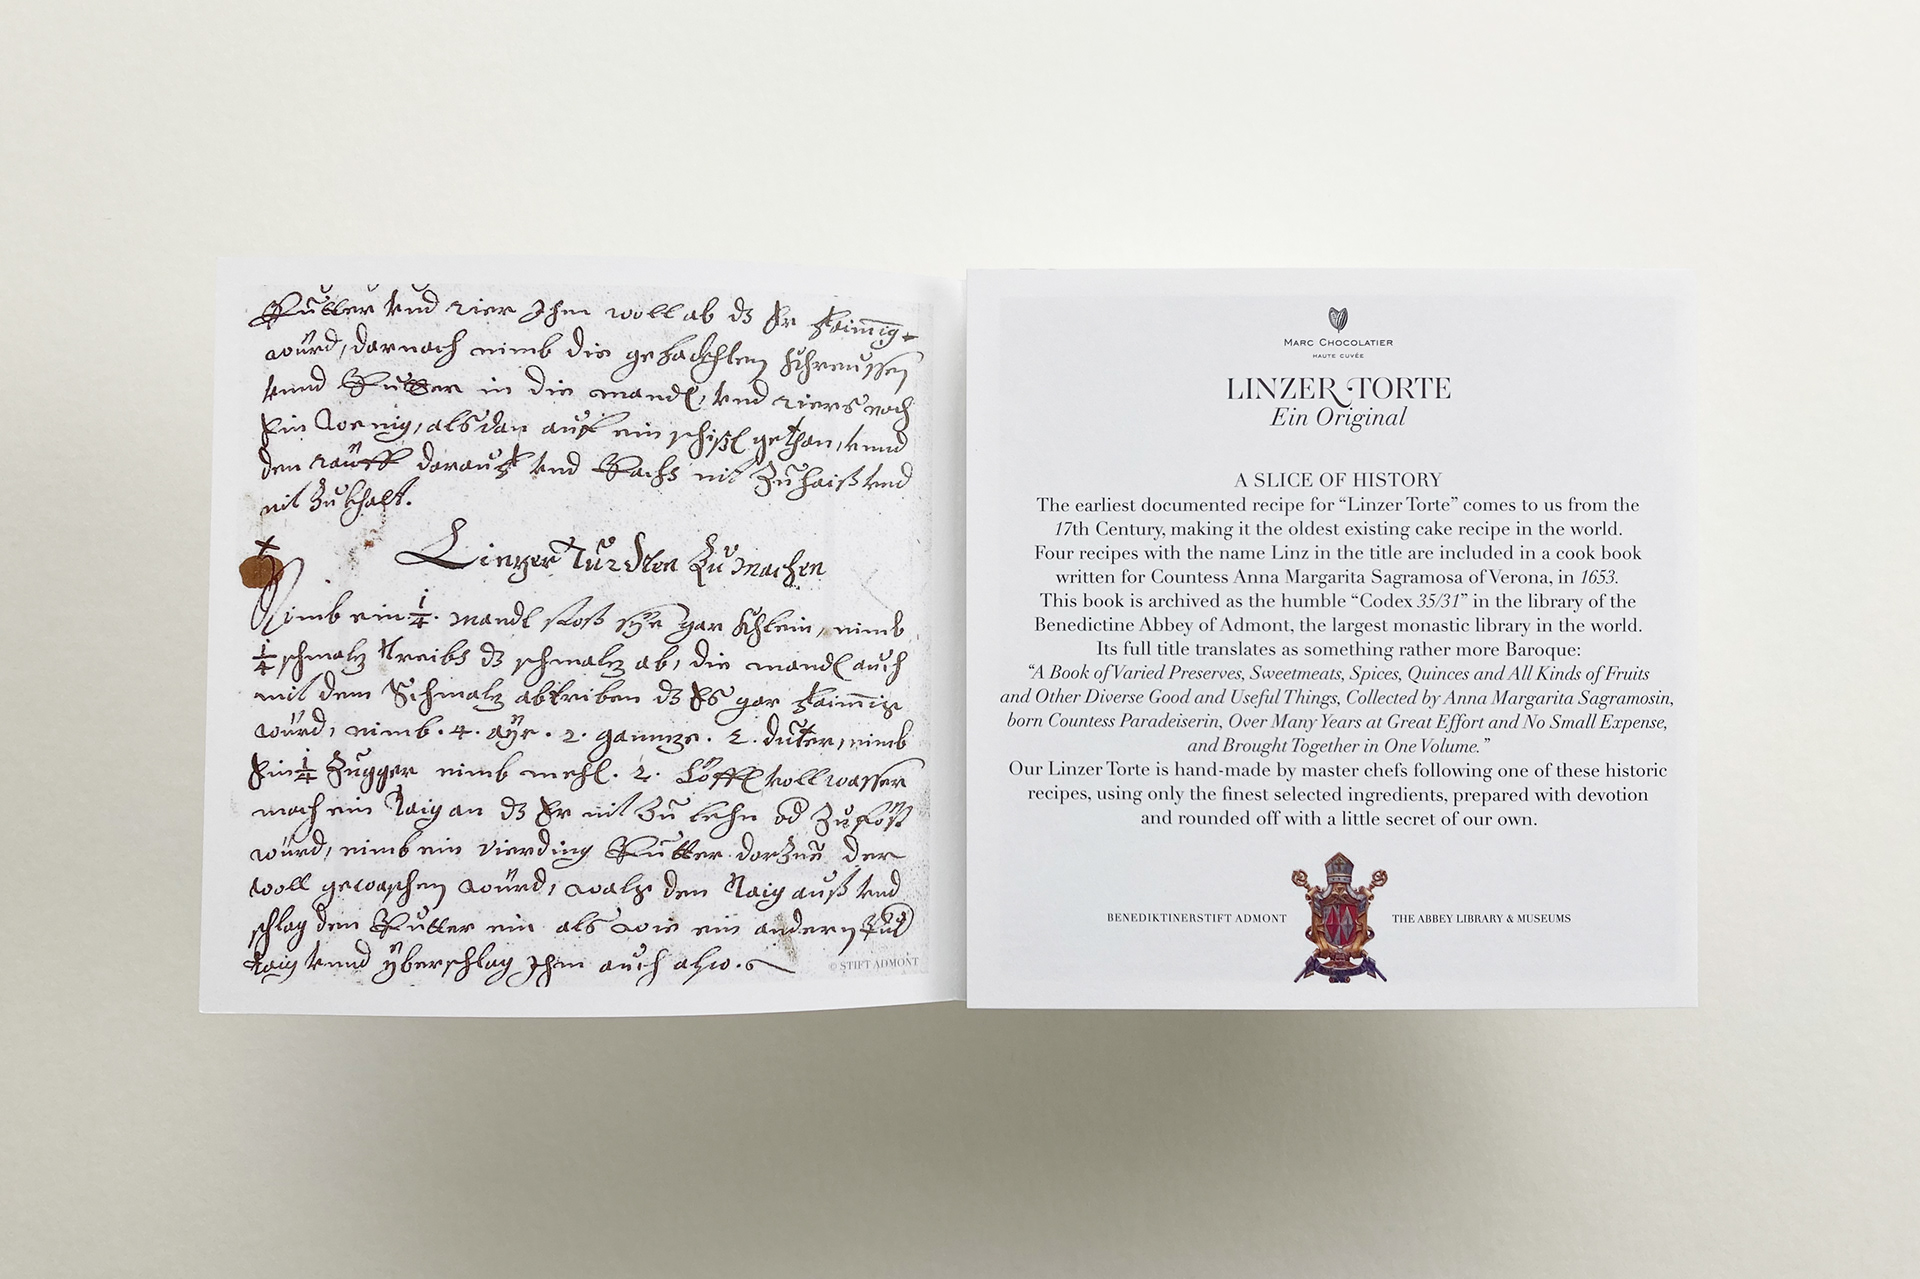 Putter vnd rier Ihm woll ab dz Er faimig
würd, darnach nimb die gehachhten Khreussen
vnnd Putter in die mandl, vnd riers noch
Ein wenig, alsdan auf ein schißl gethan, vnnd
den raiff darauf vnd Bachs nit Zu haiß vnd
nit Zu khalt.
Linzer Turdten Zu Machen
Nimb ein 1/4. mandl stoß sye gar Khlein, nimb
1/4 schmalz Treibs dz schmalz ab, die mandl auch
mit dem Schmalz abtriben dz Es gar faimig
würd, nimb. 4. ayr. 2. gannze. 2. duter, nimb
Ein 1/4 Zugger nimb mehl. 2. Löffl voll wasser
mach ein Taig an dz Er nit Zu lehn od Zu föst
würd, nimb ein vierding Putter darzue der
woll gewaschen würd, walg den Taig auß vnd
schlag den Putter ein als wie ein andern
taig vnnd yberschlag Ihm auch also.
© STIFT ADMONT
MARC CHOCOLATIER
HAUTE CUVÉE
LINZER TORTE
Ein Original
A SLICE OF HISTORY
The earliest documented recipe for “Linzer Torte” comes to us from the
17th Century, making it the oldest existing cake recipe in the world.
Four recipes with the name Linz in the title are included in a cook book
written for Countess Anna Margarita Sagramosa of Verona, in 1653.
This book is archived as the humble “Codex 35/31” in the library of the
Benedictine Abbey of Admont, the largest monastic library in the world.
Its full title translates as something rather more Baroque:
“A Book of Varied Preserves, Sweetmeats, Spices, Quinces and All Kinds of Fruits
and Other Diverse Good and Useful Things, Collected by Anna Margarita Sagramosin,
born Countess Paradeiserin, Over Many Years at Great Effort and No Small Expense,
and Brought Together in One Volume.”
Our Linzer Torte is hand-made by master chefs following one of these historic
recipes, using only the finest selected ingredients, prepared with devotion
and rounded off with a little secret of our own.
BENEDIKTINERSTIFT ADMONT THE ABBEY LIBRARY & MUSEUMS